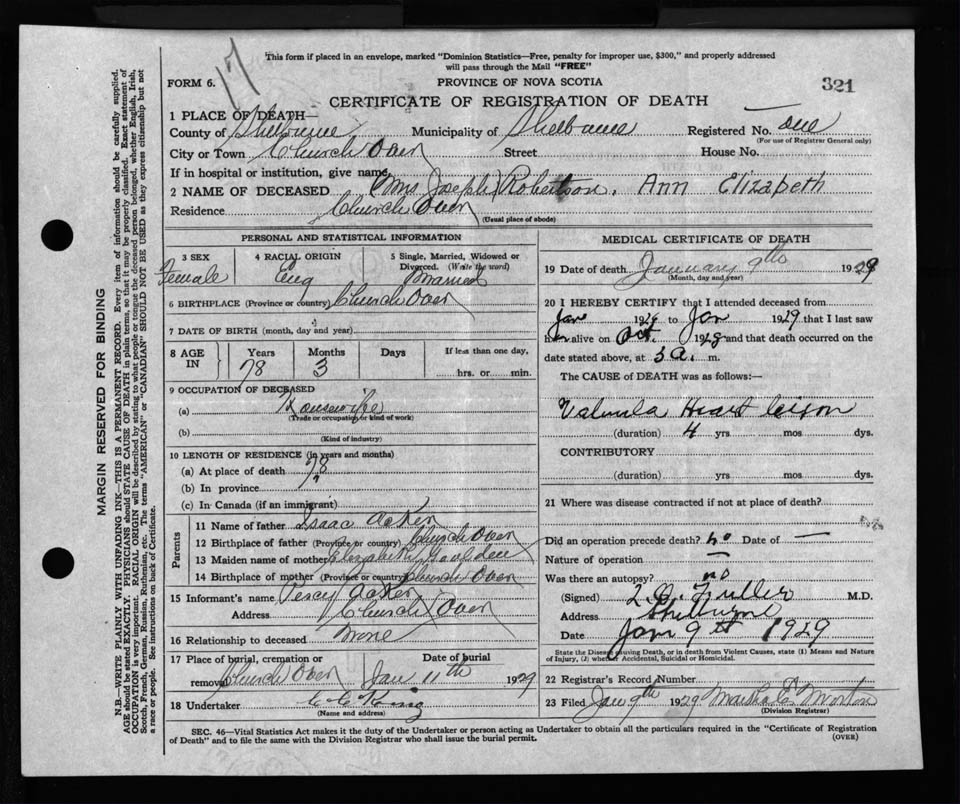 This form if placed in an envelope, marked "Dominion Statistics—Free, penalty for improper use, $300," and properly addressed
will pass through the Mail "FREE"
17
FORM 6.
PROVINCE OF NOVA SCOTIA
321
CERTIFICATE OF REGISTRATION OF DEATH
1 PLACE OF DEATH—
County of Shelburne Municipality of Shelburne Registered No. one
(For use of Registrar General only)
City or Town Church Over Street House No.
If in hospital or institution, give name
2 NAME OF DECEASED (Mrs Joseph) Robertson, Ann Elizabeth
Residence Church Over
(Usual place of abode)
PERSONAL AND STATISTICAL INFORMATION
3 SEX Female
4 RACIAL ORIGIN Eng
5 Single, Married, Widowed or
Divorced. (Write the word) Married
6 BIRTHPLACE (Province or country) Church Over
7 DATE OF BIRTH (month, day and year)
8 AGE IN Years Months Days If less than one day,
78 3 hrs. or min.
9 OCCUPATION OF DECEASED
(a) Housewife
(Trade or occupation or kind of work)
(b)
(Kind of industry)
10 LENGTH OF RESIDENCE (in years and months)
(a) At place of death 78
(b) In province
(c) In Canada (if an immigrant)
Parents
11 Name of father Isaac Acker
12 Birthplace of father (Province or country) Church Over
13 Maiden name of mother Elizabeth Goulden
14 Birthplace of mother (Province or country) Church Over
15 Informant's name Percy Acker
Address Church Over
16 Relationship to deceased None
17 Place of burial, cremation or Date of burial
removal Church Over Jan 11th 1929
18 Undertaker C C King
(Name and address)
MEDICAL CERTIFICATE OF DEATH
19 Date of death January 9th 1929
(Month, day and year)
20 I HEREBY CERTIFY that I attended deceased from
Jan 1929 to Jan 1929 that I last saw
her alive on Oct. 1928 and that death occurred on the
date stated above, at 3 a. m.
The CAUSE OF DEATH was as follows:
Valvula Heart
(duration) 4 yrs mos dys.
CONTRIBUTORY
(duration) yrs mos dys.
21 Where was disease contracted if not at place of death?
Did an operation precede death? no Date of —
Nature of operation —
Was there an autopsy? no
(Signed) Fuller M.D.
Address Shelburne
Date Jan 9th 1929
State the Disease causing Death, or in death from Violent Causes, state (1) Means and Nature
of Injury, (2) whether Accidental, Suicidal or Homicidal.
22 Registrar's Record Number
23 Filed Jan 9th 1929 Martha C Morton
(Division Registrar)
SEC. 46—Vital Statistics Act makes it the duty of the Undertaker or person acting as Undertaker to obtain all the particulars required in the "Certificate of Registration
of Death" and to file the same with the Division Registrar who shall issue the burial permit.
(OVER)
MARGIN RESERVED FOR BINDING
N.B.—WRITE PLAINLY WITH UNFADING INK—THIS IS A PERMANENT RECORD. Every item of information should be carefully supplied.
AGE should be stated EXACTLY. PHYSICIANS should STATE CAUSE OF DEATH in plain terms, so that it may be properly classified. Exact statement of
OCCUPATION is very important. RACIAL ORIGIN will be described by stating to what people or tongue the deceased person belonged, whether English, Irish,
Scotch, French, German, Russian, Ruthenian, etc. The terms "AMERICAN" or "CANADIAN" SHOULD NOT BE USED as they express citizenship but not
a race or people. See instructions on back of Certificate.